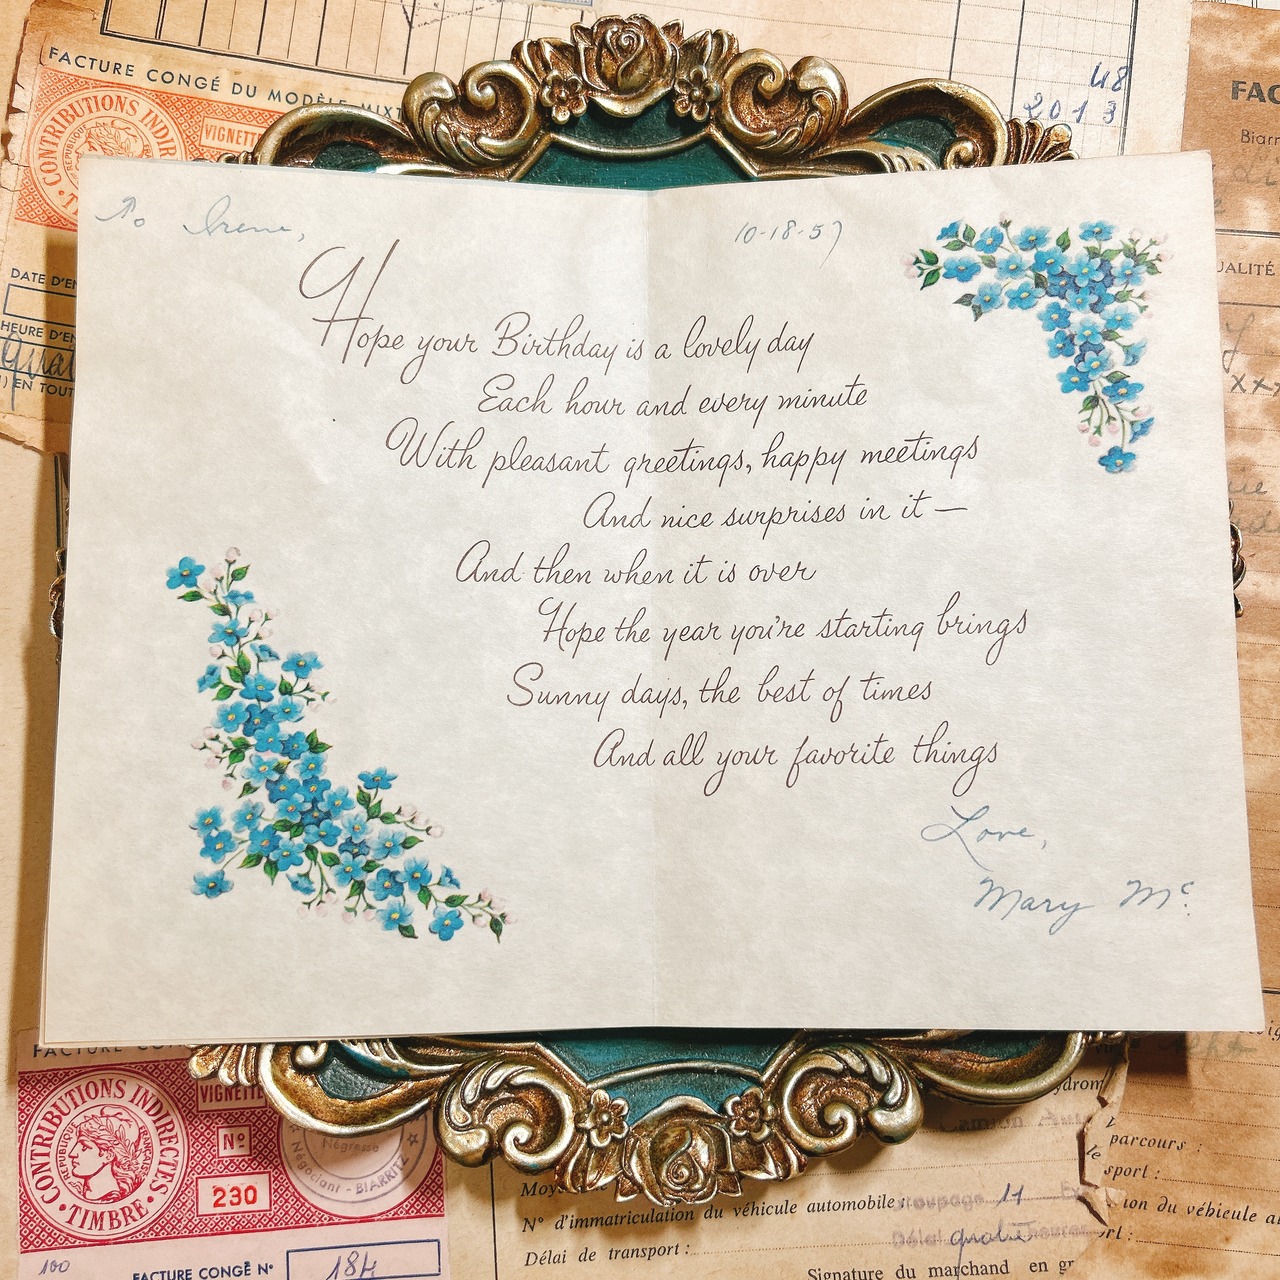 48
2013
FACTURE CONGÉ DU MODÈLE MIXT
CONTRIBUTIONS INDIR
VIGNETTE
FAC
Biarr
DATE D'EN
HEURE D'EN
EN TOUT
UALITÉ
xxx
To Irene,
10-18-57
Hope your Birthday is a lovely day
Each hour and every minute
With pleasant greetings, happy meetings
And nice surprises in it —
And then when it is over
Hope the year you're starting brings
Sunny days, the best of times
And all your favorite things
Love,
Mary Mc.
FACTURE CON
CONTRIBUTIONS INDIRECTES
RÉPUBLIQUE FRANÇAISE
• TIMBRE •
VIGNETTE
No
230
Négresse
Négociant - BIARRITZ
100
FACTURE CONGÉ No 184
ydrom
parcours :
sport :
Moy
No d'immatriculation du véhicule automobile
11
Délai de transport :
Signature du marchand en gr
ion du véhicule a
rt :